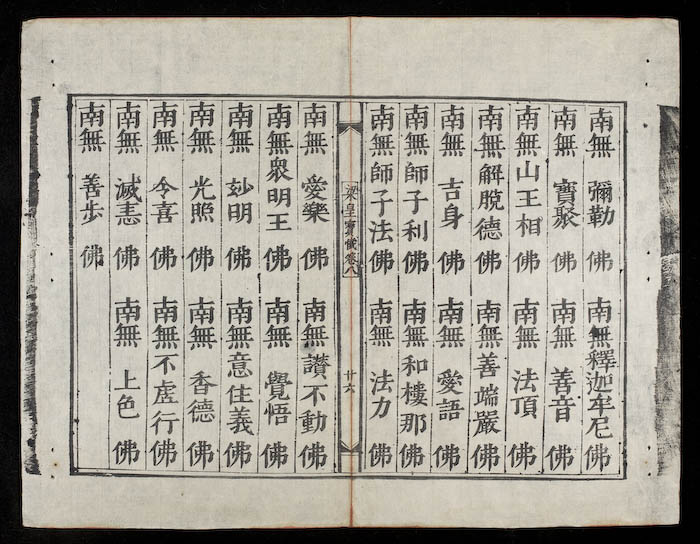 南無彌勒佛 南無釋迦牟尼佛
南無寶聚佛 南無善音佛
南無山王相佛 南無法頂佛
南無解脫德佛 南無善端嚴佛
南無吉身佛 南無愛語佛
南無師子利佛 南無和樓那佛
南無師子法佛 南無法力佛
梁皇寶懺卷八 廿六
南無愛樂佛 南無讚不動佛
南無衆明王佛 南無覺悟佛
南無妙明佛 南無意住義佛
南無光照佛 南無香德佛
南無令喜佛 南無不虛行佛
南無滅恚佛 南無上色佛
南無善步佛